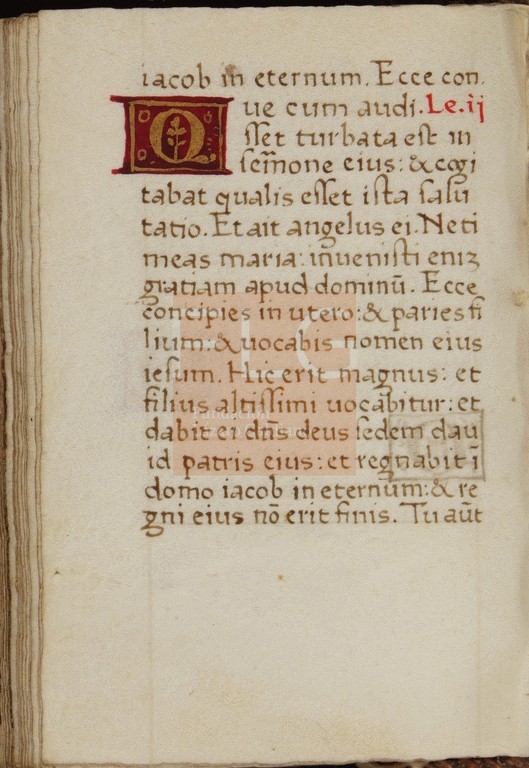 iacob in eternum. Ecce con.
Que cum audi. Le. ij
sset turbata est in
sermone eius: & cogi
tabat qualis esset ista salu
tatio. Et ait angelus ei. Ne ti
meas maria: invenisti eniz
gratiam apud dominū. Ecce
concipies in utero: & paries fi
lium: & vocabis nomen eius
iesum. Hic erit magnus: et
filius altissimi vocabitur: et
dabit ei dn̄s deus sedem dau
id patris eius: et regnabit ī
domo iacob in eternum: & re
gni eius nō erit finis. Tu aūt